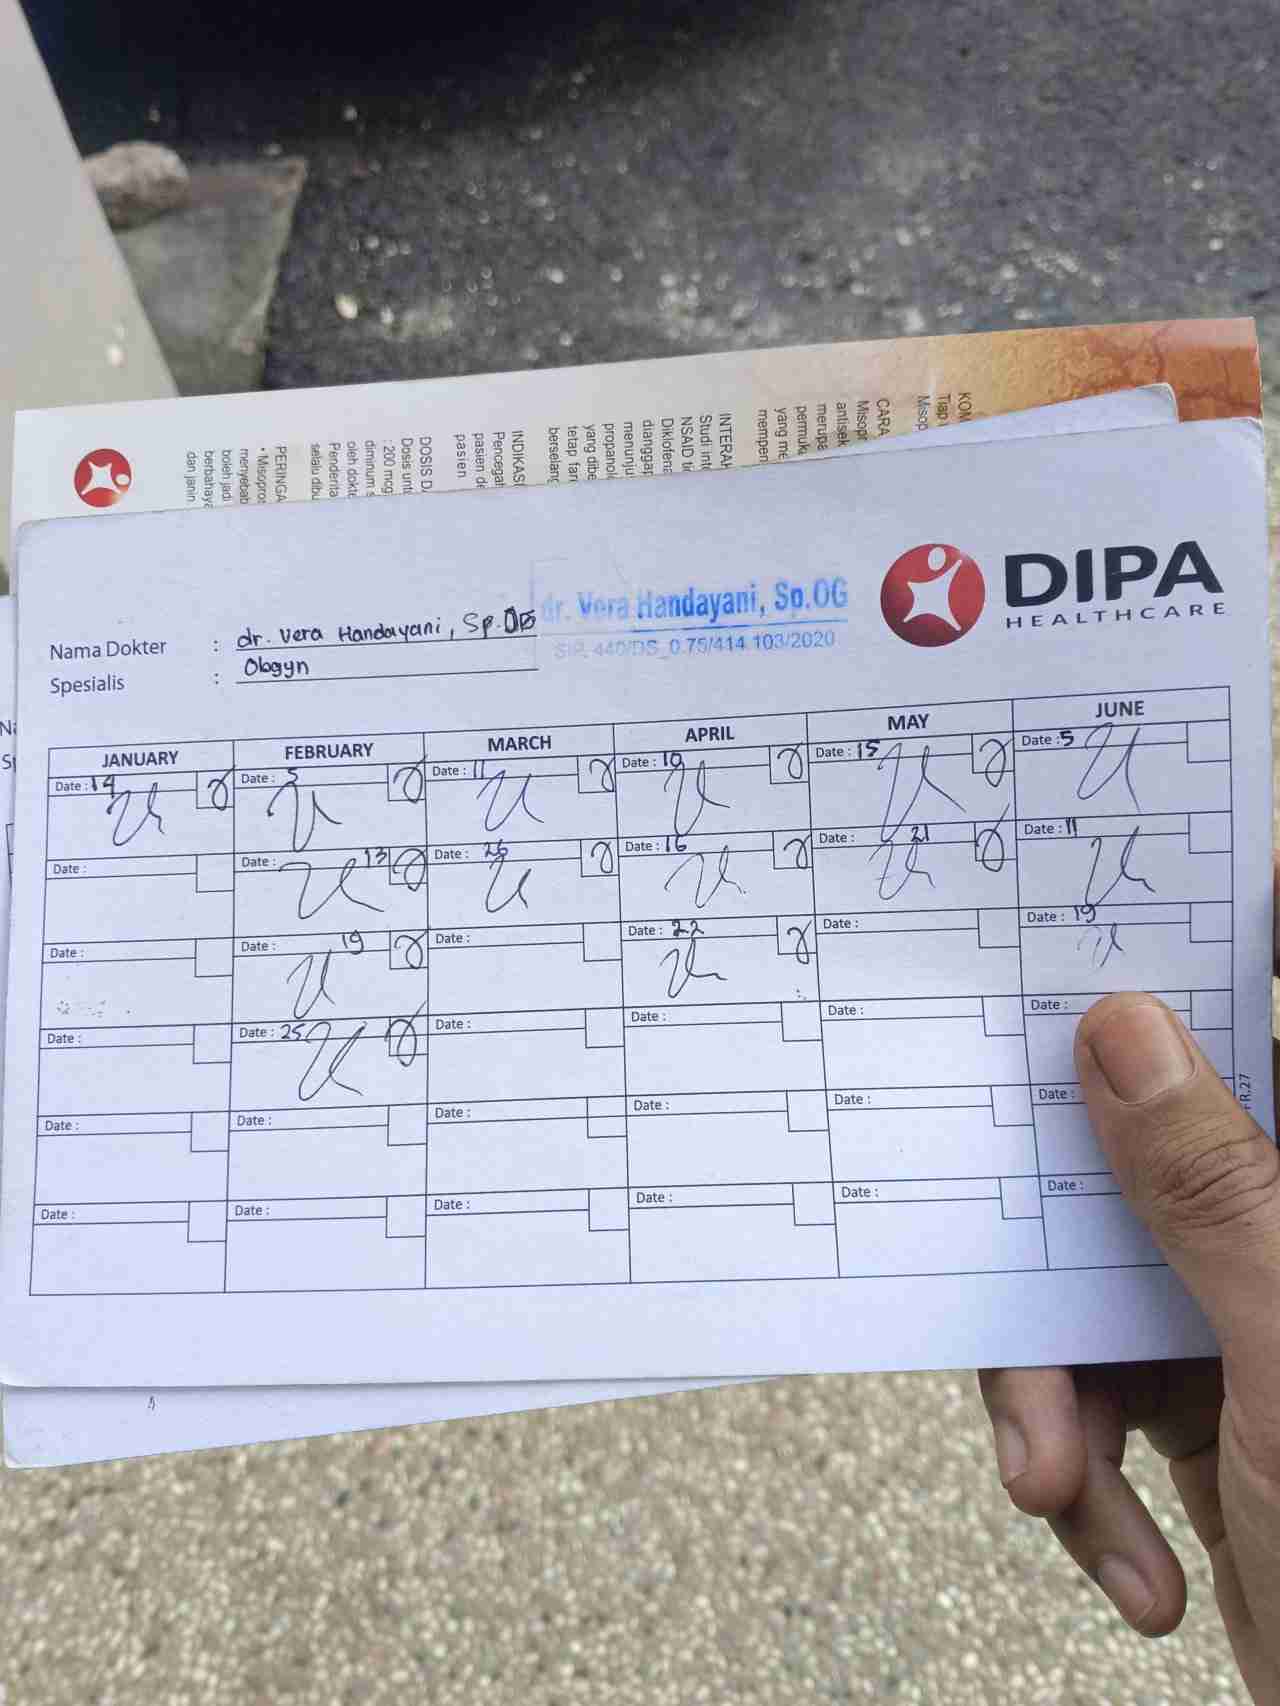 KOM
Tiap
Misop
CARA
Misopr
antisek
merupa
permuka
yang me
mempen
INTERAK
Studi inte
NSAID ti
Diklofena
dianggap
menunju
propanolo
yang dibe
tetap far
berselang
INDIKASI
Pencegah
pasien de
pasien
DOSIS DA
Dosis untu
: 200 mcg
diminum s
oleh dokte
Penderita
selalu dibu
PERINGA
• Misopros
menyebab
boleh jadi
berbahaya
dan janin
DIPA
HEALTHCARE
dr. Vera Handayani, Sp.OG
SIP. 440/DS_0.75/414.103/2020
Nama Dokter : dr. Vera Handayani, Sp.OG
Spesialis : Obgyn
JANUARY FEBRUARY MARCH APRIL MAY JUNE
Date : 14 Date : 5 Date : 11 Date : 10 Date : 15 Date : 5
Date : Date : 13 Date : 26 Date : 16 Date : 21 Date : 11
Date : Date : 19 Date : Date : 22 Date : Date : 19
Date : Date : 25 Date : Date : Date : Date :
Date : Date : Date : Date : Date : Date :
Date : Date : Date : Date : Date : Date :
FR.27